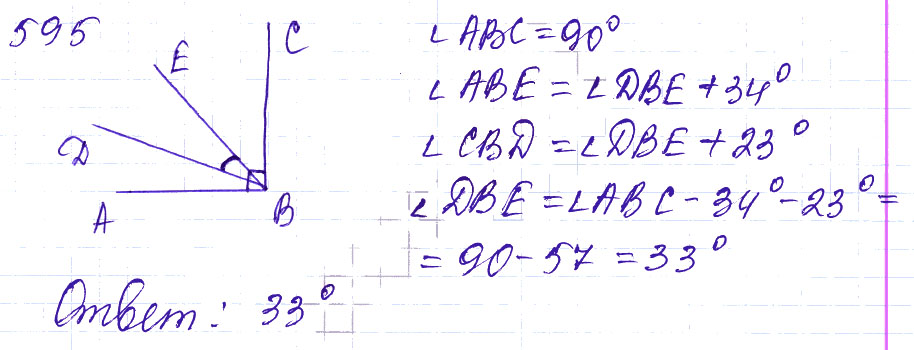 595
C
E
D
A
B
∠ABC = 90°
∠ABE = ∠DBE + 34°
∠CBD = ∠DBE + 23°
∠DBE = ∠ABC - 34° - 23° =
= 90 - 57 = 33°
Ответ: 33°